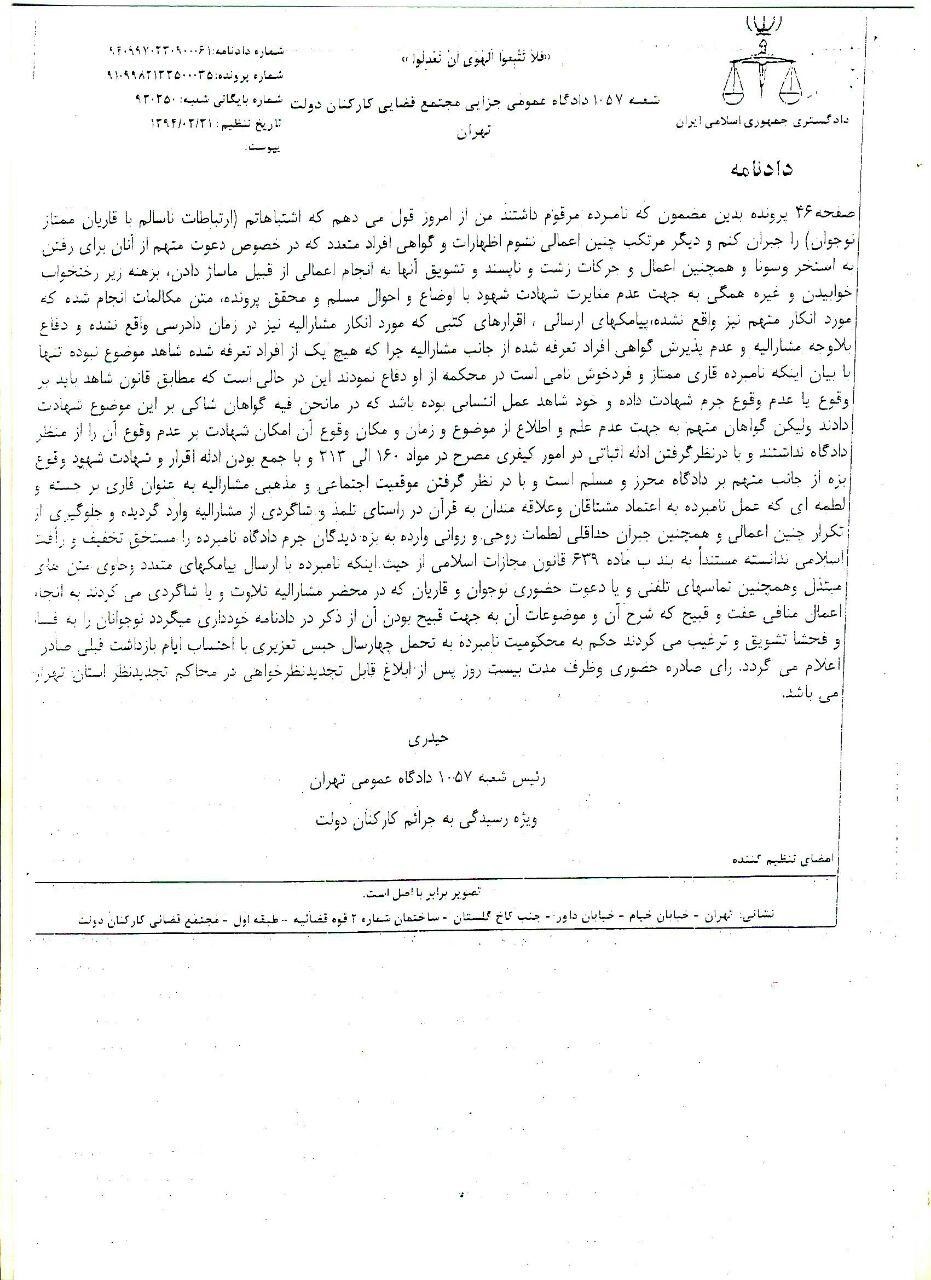 «فلا تتبعوا الهوی ان تعدلوا»
شماره دادنامه: ۹۴۰۹۹۷۰۲۳۰۹۰۰۰۶۱
شماره پرونده: ۹۱۰۹۹۸۲۱۳۳۵۰۰۰۳۵
شعبه ۱۰۵۷ دادگاه عمومی جزایی مجتمع قضایی کارکنان دولت
تهران
شماره بایگانی شعبه: ۹۳۰۲۵۰
تاریخ تنظیم: ۱۳۹۴/۰۲/۲۱
پیوست:
دادگستری جمهوری اسلامی ایران
دادنامه
صفحه ۴۶ پرونده بدین مضمون که نامبرده مرقوم داشتند من از امروز قول می دهم که اشتباهاتم (ارتباطات ناسالم با قاریان ممتاز
نوجوان) را جبران کنم و دیگر مرتکب چنین اعمالی نشوم اظهارات و گواهی افراد متعدد که در خصوص دعوت متهم از آنان برای رفتن
به استخر وسونا و همچنین اعمال و حرکات زشت و ناپسند و تشویق آنها به انجام اعمالی از قبیل ماساژ دادن، برهنه زیر رختخواب
خوابیدن و غیره همگی به جهت عدم مغایرت شهادت شهود با اوضاع و احوال مسلم و محقق پرونده، متن مکالمات انجام شده که
مورد انکار متهم نیز واقع نشده،پیامکهای ارسالی ، اقرارهای کتبی که مورد انکار مشارالیه نیز در زمان دادرسی واقع نشده و دفاع
بلاوجه مشارالیه و عدم پذیرش گواهی افراد تعرفه شده از جانب مشارالیه چرا که هیچ یک از افراد تعرفه شده شاهد موضوع نبوده تنها
با بیان اینکه نامبرده قاری ممتاز و فردخوش نامی است در محکمه از او دفاع نمودند این در حالی است که مطابق قانون شاهد باید بر
وقوع یا عدم وقوع جرم شهادت داده و خود شاهد عمل انتسابی بوده باشد که در مانحن فیه گواهان شاکی بر این موضوع شهادت
دادند ولیکن گواهان متهم به جهت عدم علم و اطلاع از موضوع و زمان و مکان وقوع آن امکان شهادت بر عدم وقوع آن را از منظر
دادگاه نداشتند و با درنظرگرفتن ادله اثباتی در امور کیفری مصرح در مواد ۱۶۰ الی ۲۱۳ و با جمع بودن ادله اقرار و شهادت شهود وقوع
بزه از جانب متهم بر دادگاه محرز و مسلم است و با در نظر گرفتن موقعیت اجتماعی و مذهبی مشارالیه به عنوان قاری بر جسته و
لطمه ای که عمل نامبرده به اعتماد مشتاقان وعلاقه مندان به قرآن در راستای تلمذ و شاگردی از مشارالیه وارد گردیده و جلوگیری از
تکرار چنین اعمالی و همچنین جبران حداقلی لطمات روحی و روانی وارده به بزه دیدگان جرم دادگاه نامبرده را مستحق تخفیف و رأفت
اسلامی ندانسته مستنداً به بند ب ماده ۶۳۹ قانون مجازات اسلامی از حیث اینکه نامبرده با ارسال پیامکهای متعدد وحاوی متن های
مبتذل وهمچنین تماسهای تلفنی و یا دعوت حضوری نوجوان و قاریان که در محضر مشارالیه تلاوت و یا شاگردی می کردند به انجام
اعمال منافی عفت و قبیح که شرح آن و موضوعات آن به جهت قبیح بودن آن از ذکر در دادنامه خودداری میگردد نوجوانان را به فساد
و فحشا تشویق و ترغیب می کردند حکم به محکومیت نامبرده به تحمل چهارسال حبس تعزیری با احتساب ایام بازداشت قبلی صادر
اعلام می گردد. رای صادره حضوری وظرف مدت بیست روز پس از ابلاغ قابل تجدیدنظرخواهی در محاکم تجدیدنظر استان تهران
می باشد.
حیدری
رئیس شعبه ۱۰۵۷ دادگاه عمومی تهران
ویژه رسیدگی به جرائم کارکنان دولت
امضای تنظیم کننده
تصویر برابر با اصل است.
نشانی: تهران - خیابان خیام - خیابان داور - جنب کاخ گلستان - ساختمان شماره ۲ قوه قضائیه - طبقه اول - مجتمع قضائی کارکنان دولت